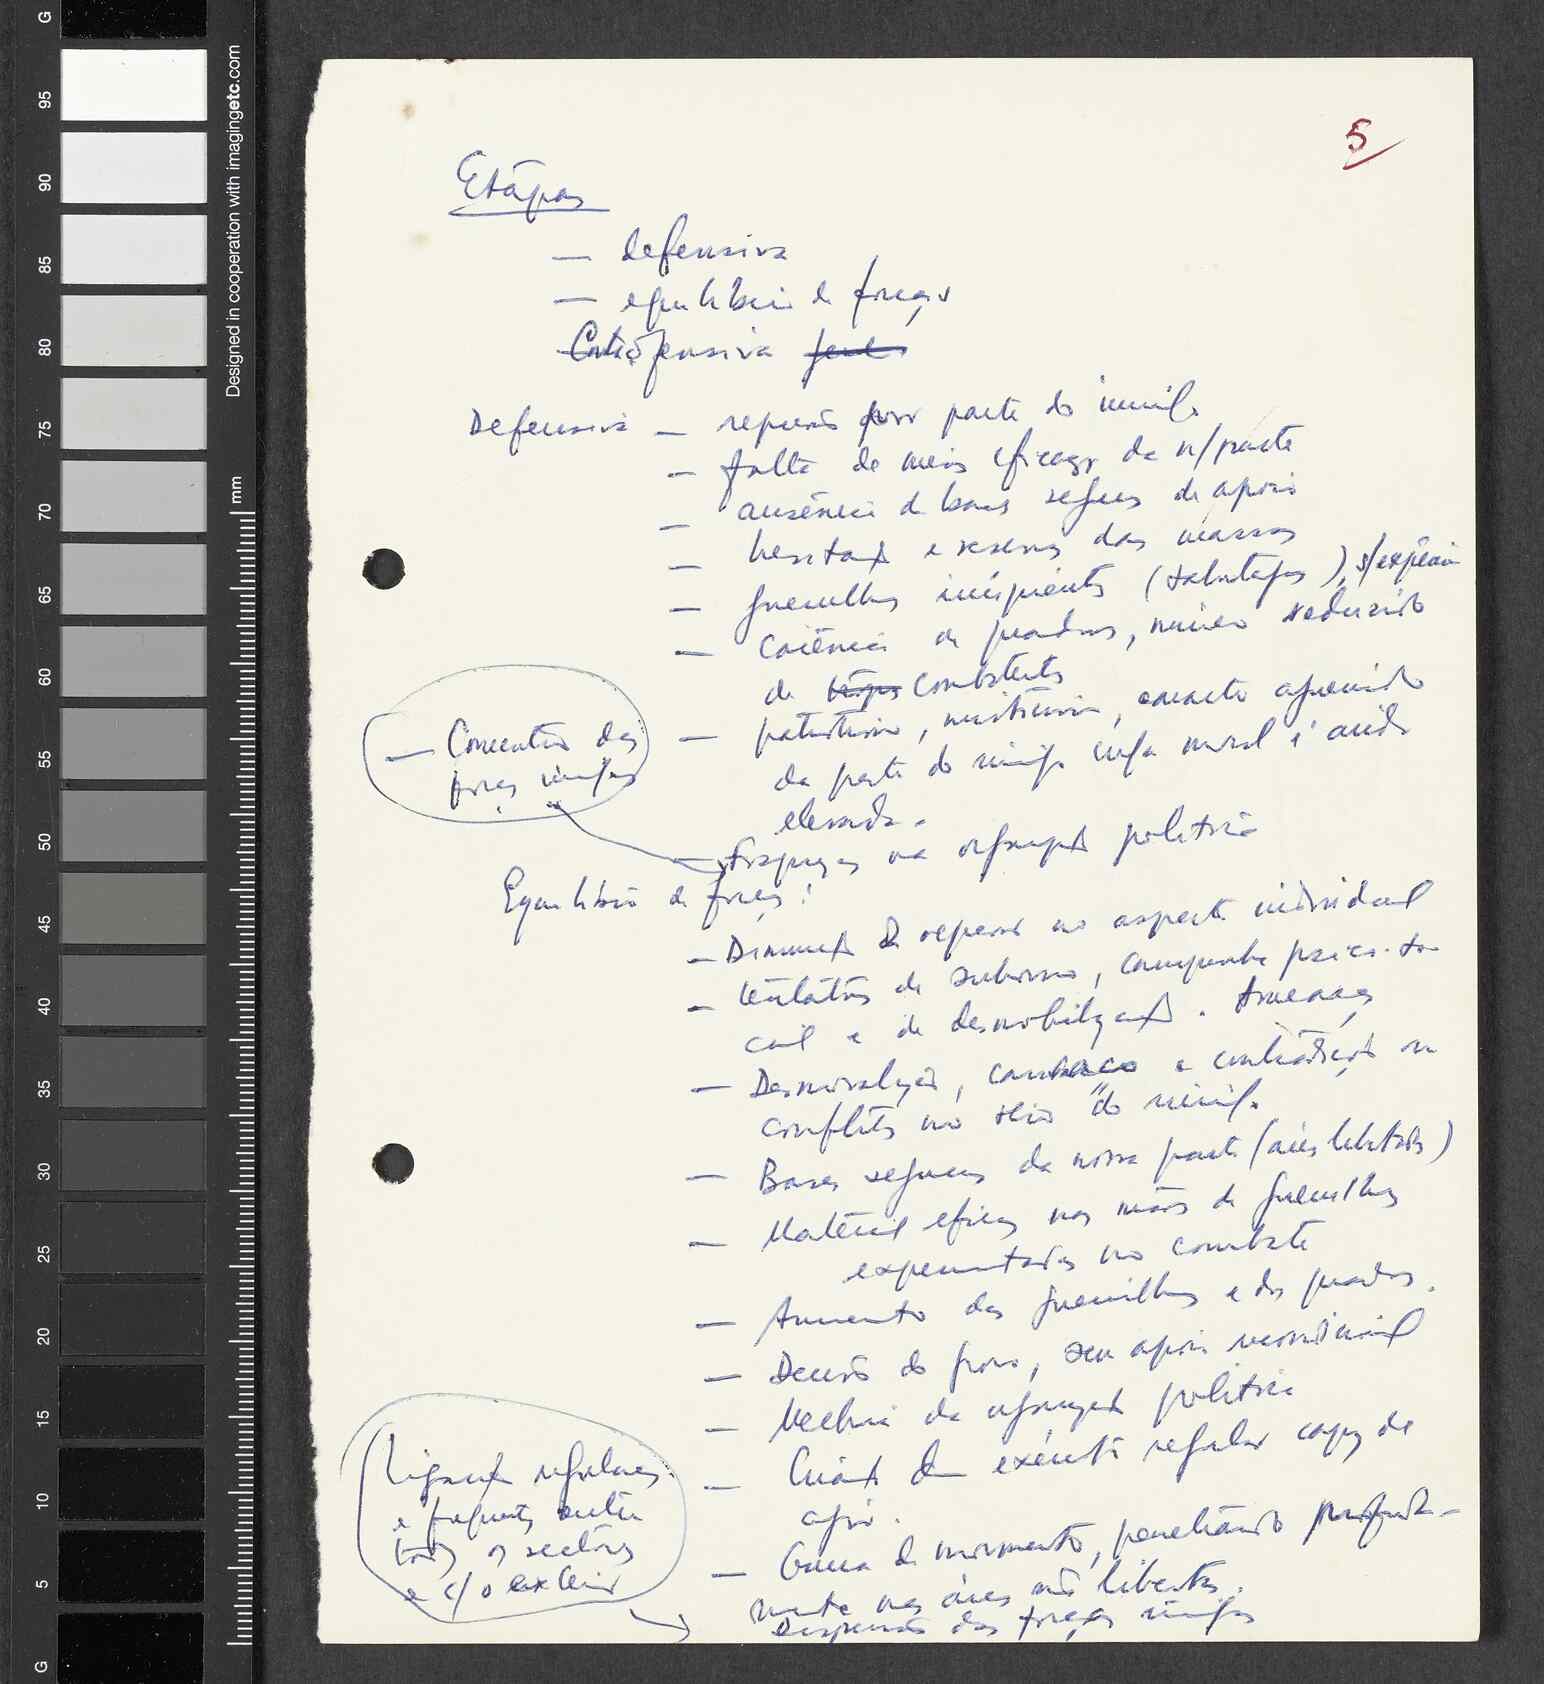 5
Etápas
— defensiva
— equilíbrio de forças
Controfensiva
Defensiva — repressão por parte do inimigo
— falta de meios eficazes da n/parte
— ausência de bases seguras de apoio
— hesitação e reservas das massas
— guerrilhas incipientes (sabotagens), s/experiência
— carência de quadros, número reduzido
de combatentes
— patriotismo, , aguerrido
da parte do inimigo cuja moral é ainda
elevada.
— Concentração das
forças inimigas
— Fraquezas na organização política
Equilíbrio de forças:
— Diminuição da repressão no aspecto individual
— tentativas de suborno, campanha psico-so-
cial e de desmobilização. Ameaças
— Desmoralização, cansaço e contradições ou
conflitos no seio do inimigo
— Bases seguras da nossa parte (áreas libertadas)
— Material eficaz nas mãos de guerrilhas
experimentadas no combate
— Aumento das guerrilhas e dos quadros.
— Decisão do povo, seu apoio incondicional
— Melhoria da organização política
— Criação dum exército regular capaz de
agir.
— Guerra de movimento, penetrando profunda-
mente nas áreas não libertas.
Ligação regulares
e frequentes entre
todos os sectores
e c/o exterior
dispersão das forças inimigas
Designed in cooperation with imagingetc.com
mm
G
95
90
85
80
75
70
65
60
55
50
45
40
35
30
25
20
15
10
5
G